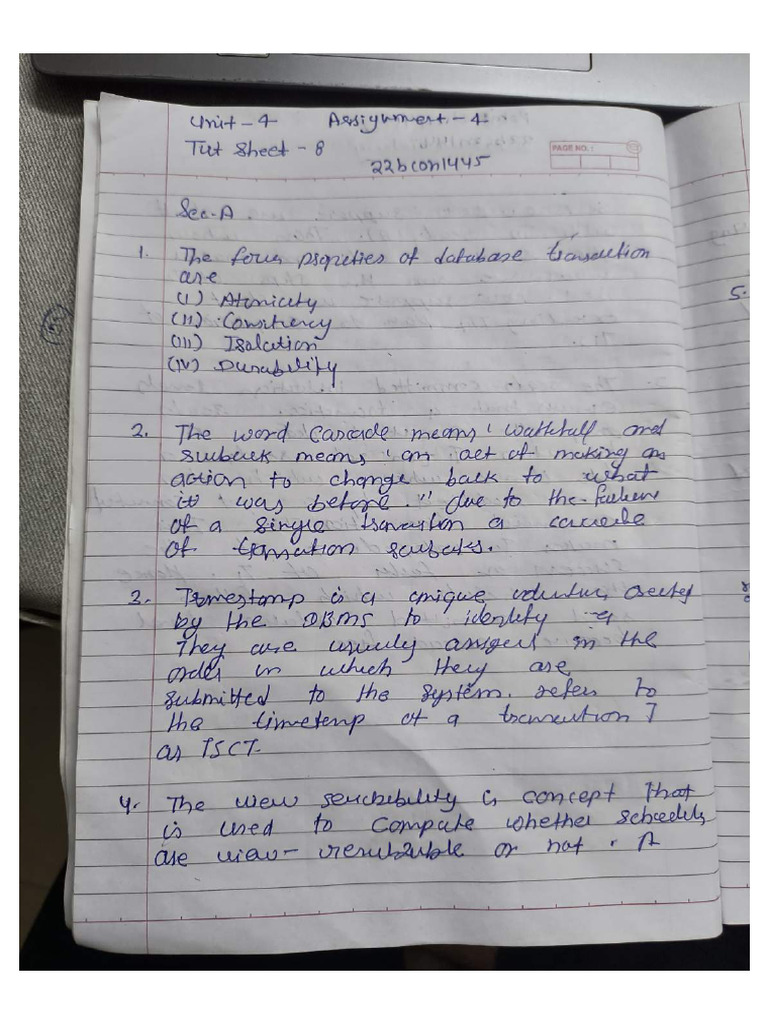 Unit - 4 Assignment - 4
Tut Sheet - 8
22bcon1445
PAGE NO. :
Sec. A
1. The four properties of database transaction
are
(I) Atomicity
(II) Consistency
(III) Isolation
(IV) Durability
2. The word Cascade means ' and
means ' an act of making an
action to change back to what
it was before." due to the failure
of a single transaction a cascade
of
3. Timestamp is a unique created
by the DBMS to identify a
They are usually assigned in the
order in which they are
submitted to the system. refer to
the timestamp of a transaction T
as
4. The view is concept that
is used to compute whether schedules
are view- or not. A
5.